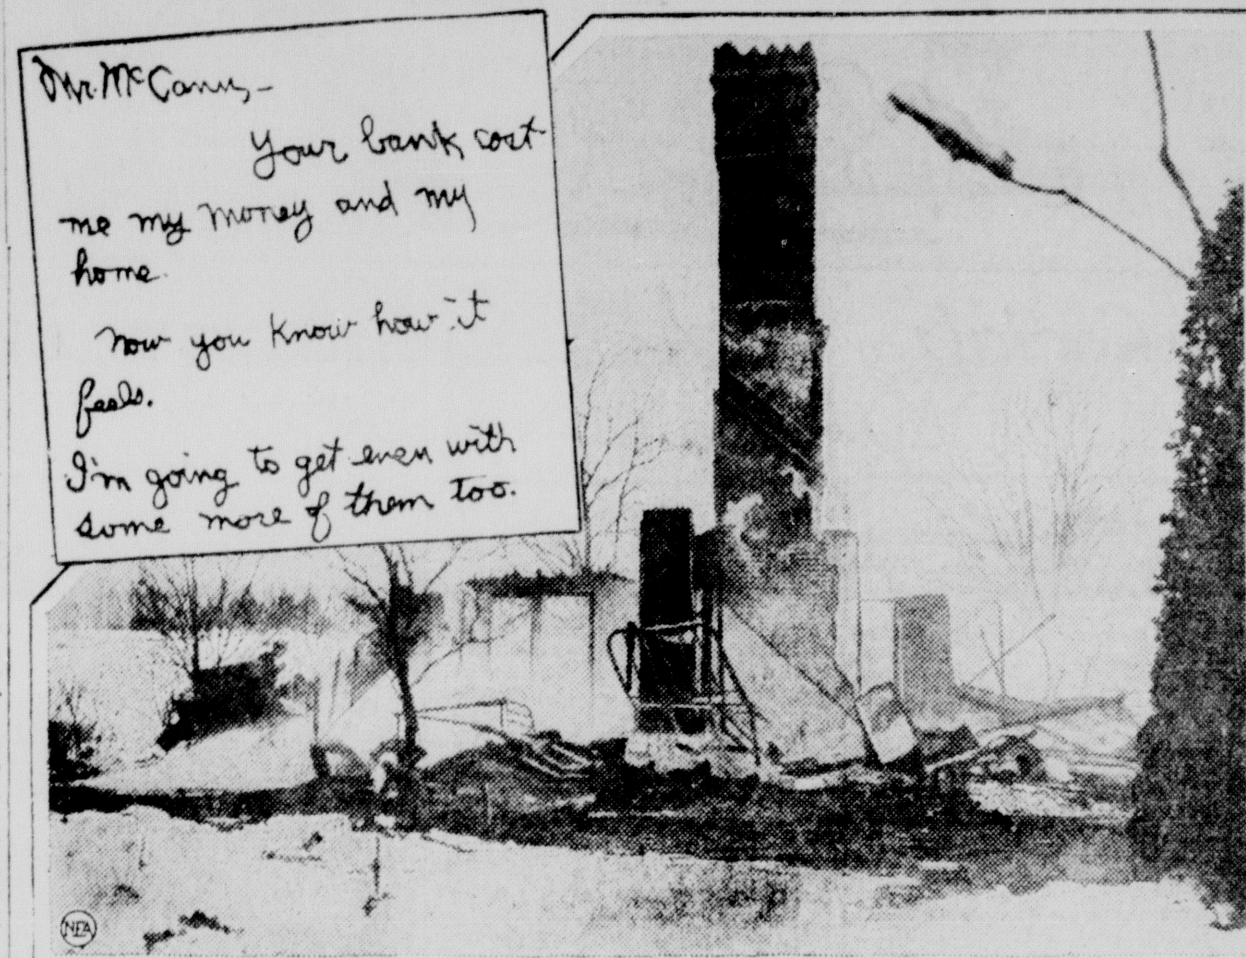 Mr. McCann,—
Your bank cost
me my money and my
home.
now you know how it
feels.
I'm going to get even with
some more of them too.
NEA